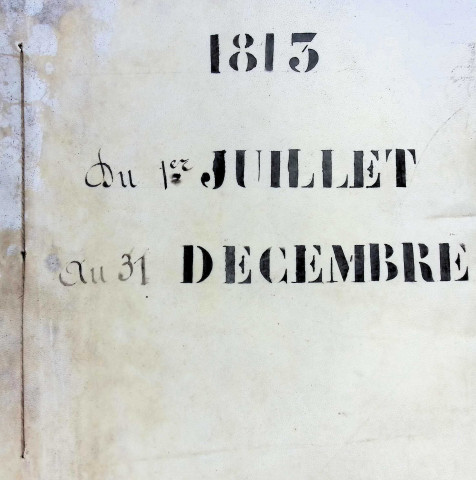 1813
Du 1er JUILLET
Au 31 DECEMBRE